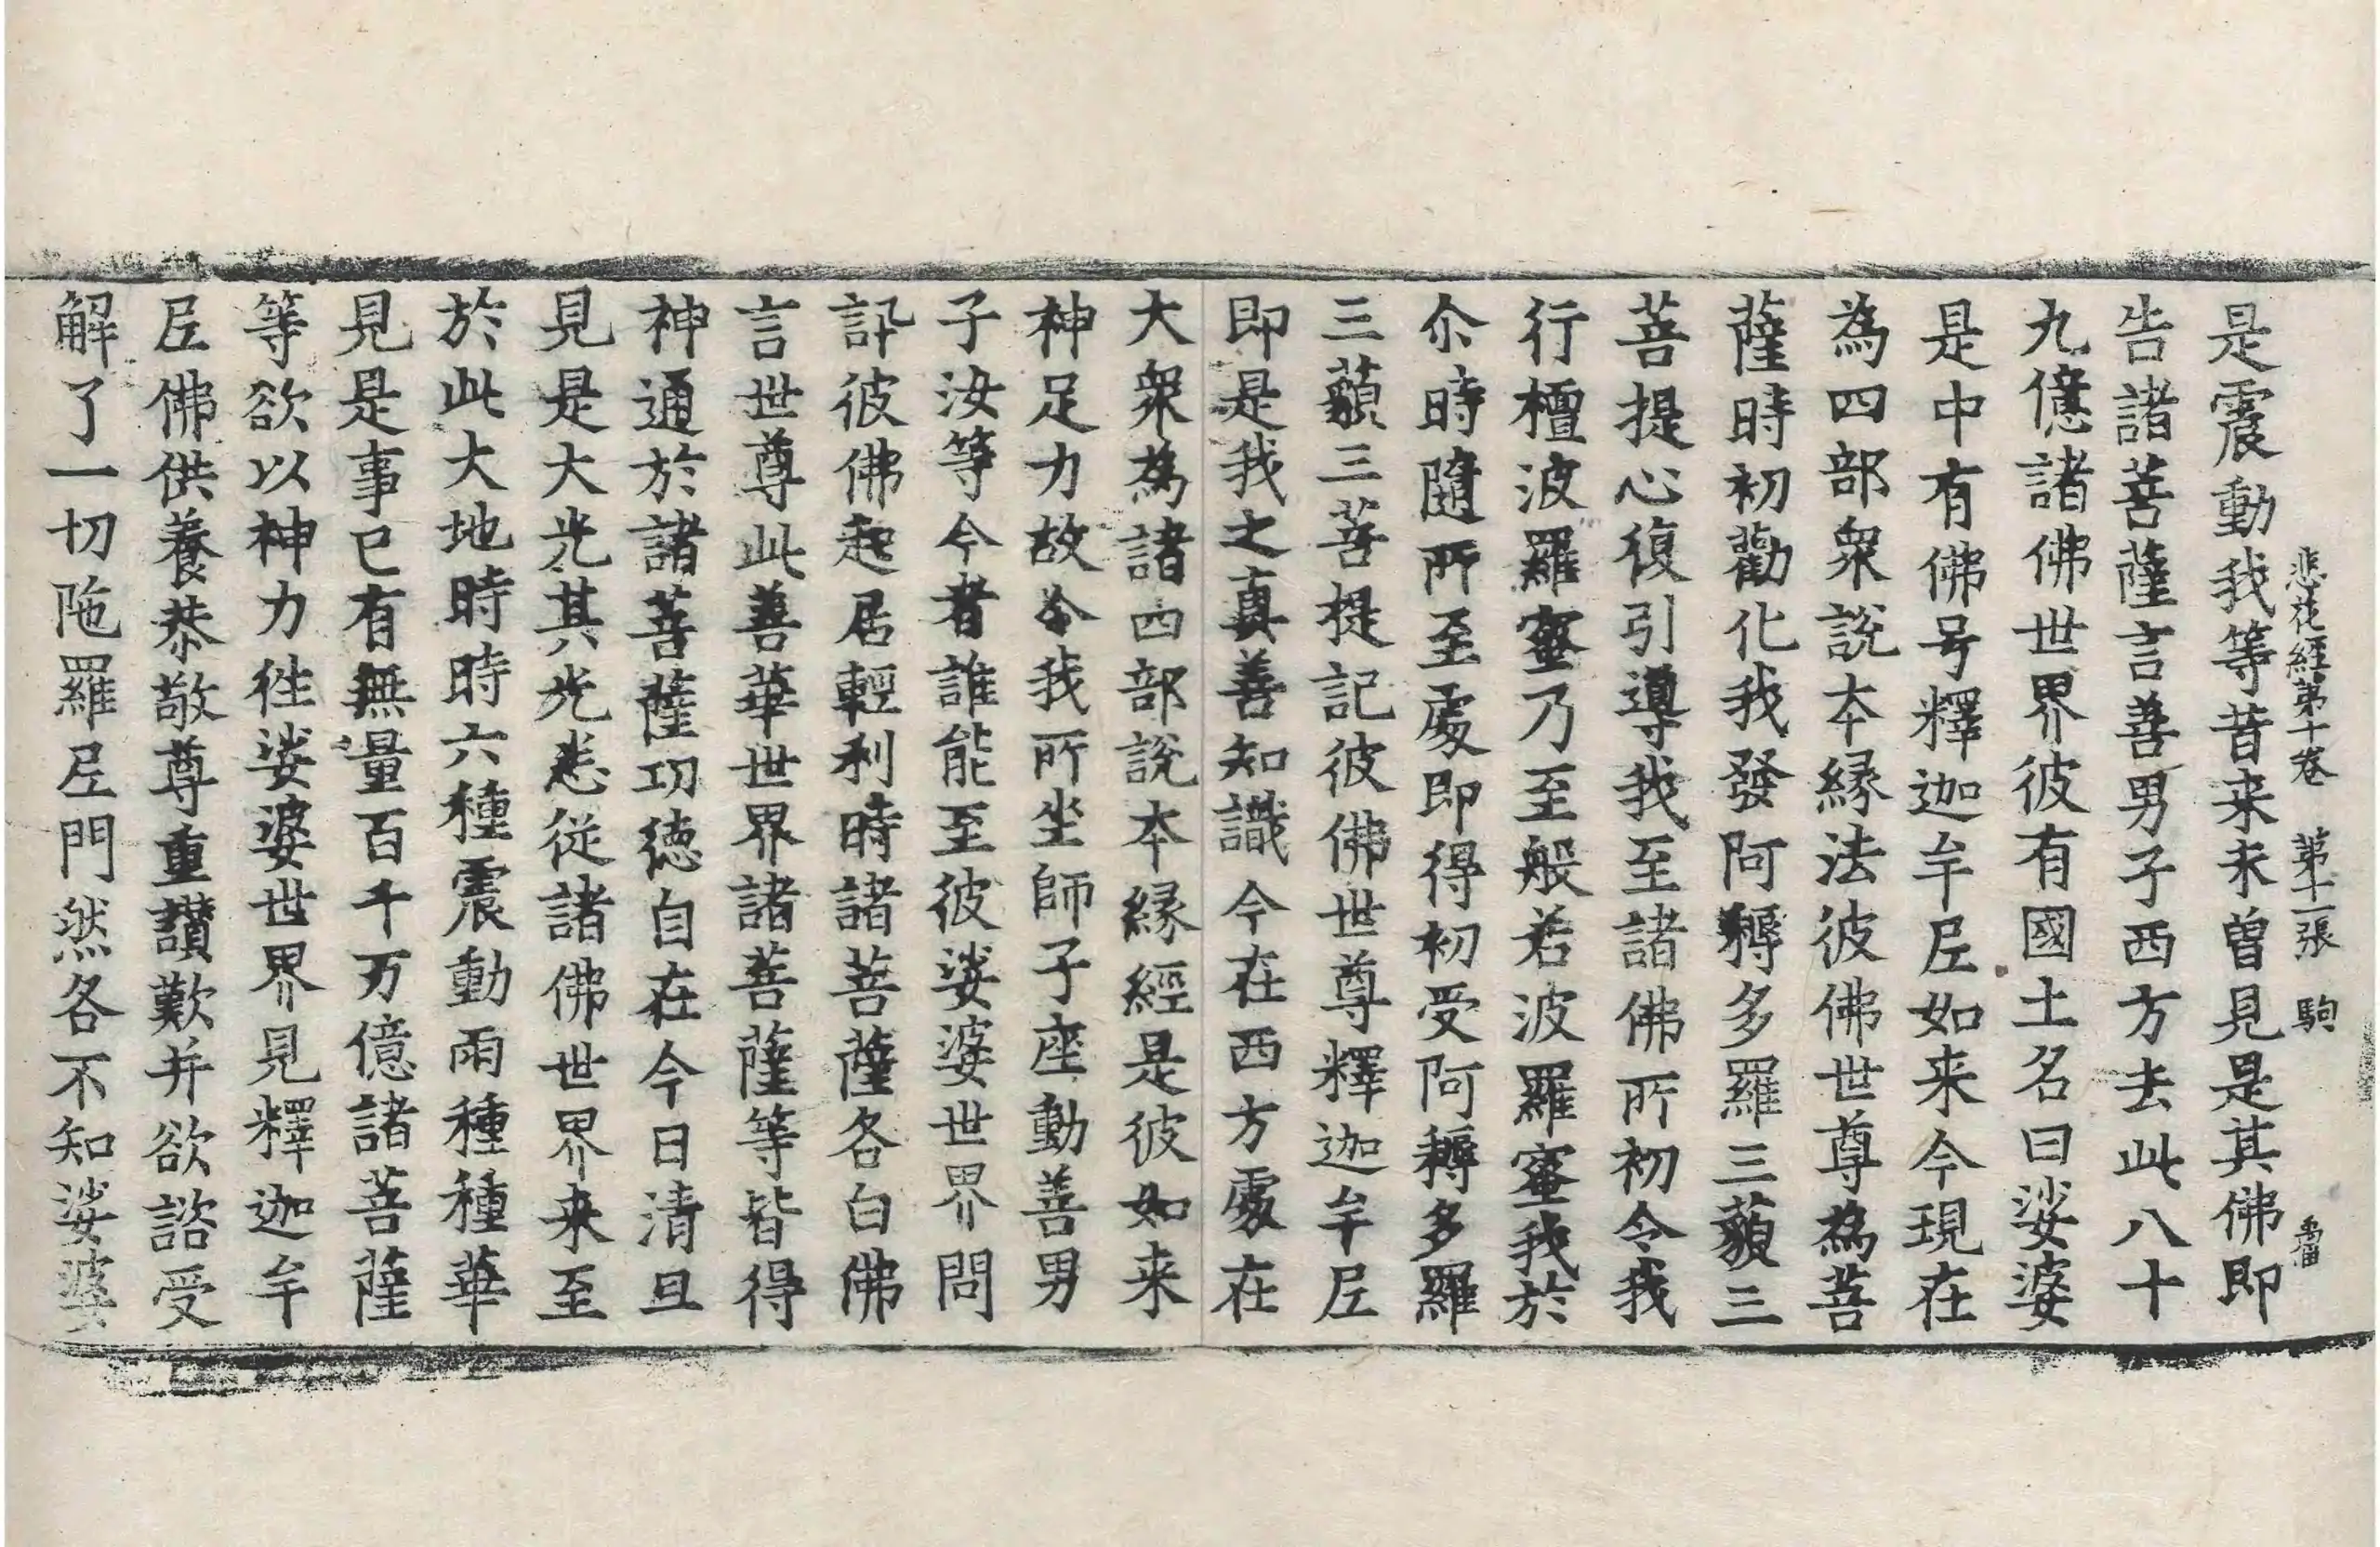 悲花經第十卷 第十一張 駒
是震動我等昔来未曾見是其佛即
告諸菩薩言善男子西方去此八十
九億諸佛世界彼有國土名曰娑婆
是中有佛号釋迦牟尼如来今現在
為四部衆說本緣法彼佛世尊為菩
薩時初勸化我發阿耨多羅三藐三
菩提心復引導我至諸佛所初令我
行檀波羅蜜乃至般若波羅蜜我於
尒時隨所至處即得初受阿耨多羅
三藐三菩提記彼佛世尊釋迦牟尼
即是我之真善知識今在西方處在
大衆為諸四部說本緣經是彼如来
神足力故令我所坐師子座動善男
子汝等今者誰能至彼娑婆世界問
訊彼佛起居輕利時諸菩薩各白佛
言世尊此善華世界諸菩薩等皆得
神通於諸菩薩功德自在今日清旦
見是大光其光悉從諸佛世界来至
於此大地時時六種震動雨種種華
見是事已有無量百千万億諸菩薩
等欲以神力往娑婆世界見釋迦牟
尼佛供養恭敬尊重讃歎并欲諮受
解了一切陁羅尼門然各不知娑婆